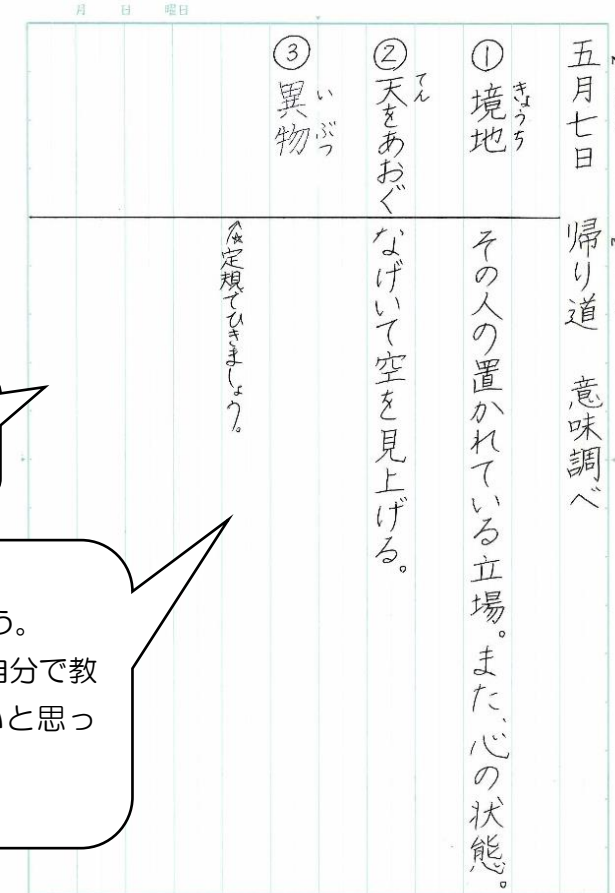 月 日 曜日
五月七日 帰り道 意味調べ
①境地 その人の置かれている立場。また、心の状態。
きょうち
②天をあおぐ なげいて空を見上げる。
てん
③異物
いぶつ
定規でひきましょう。
う。
自分で教
いと思っ